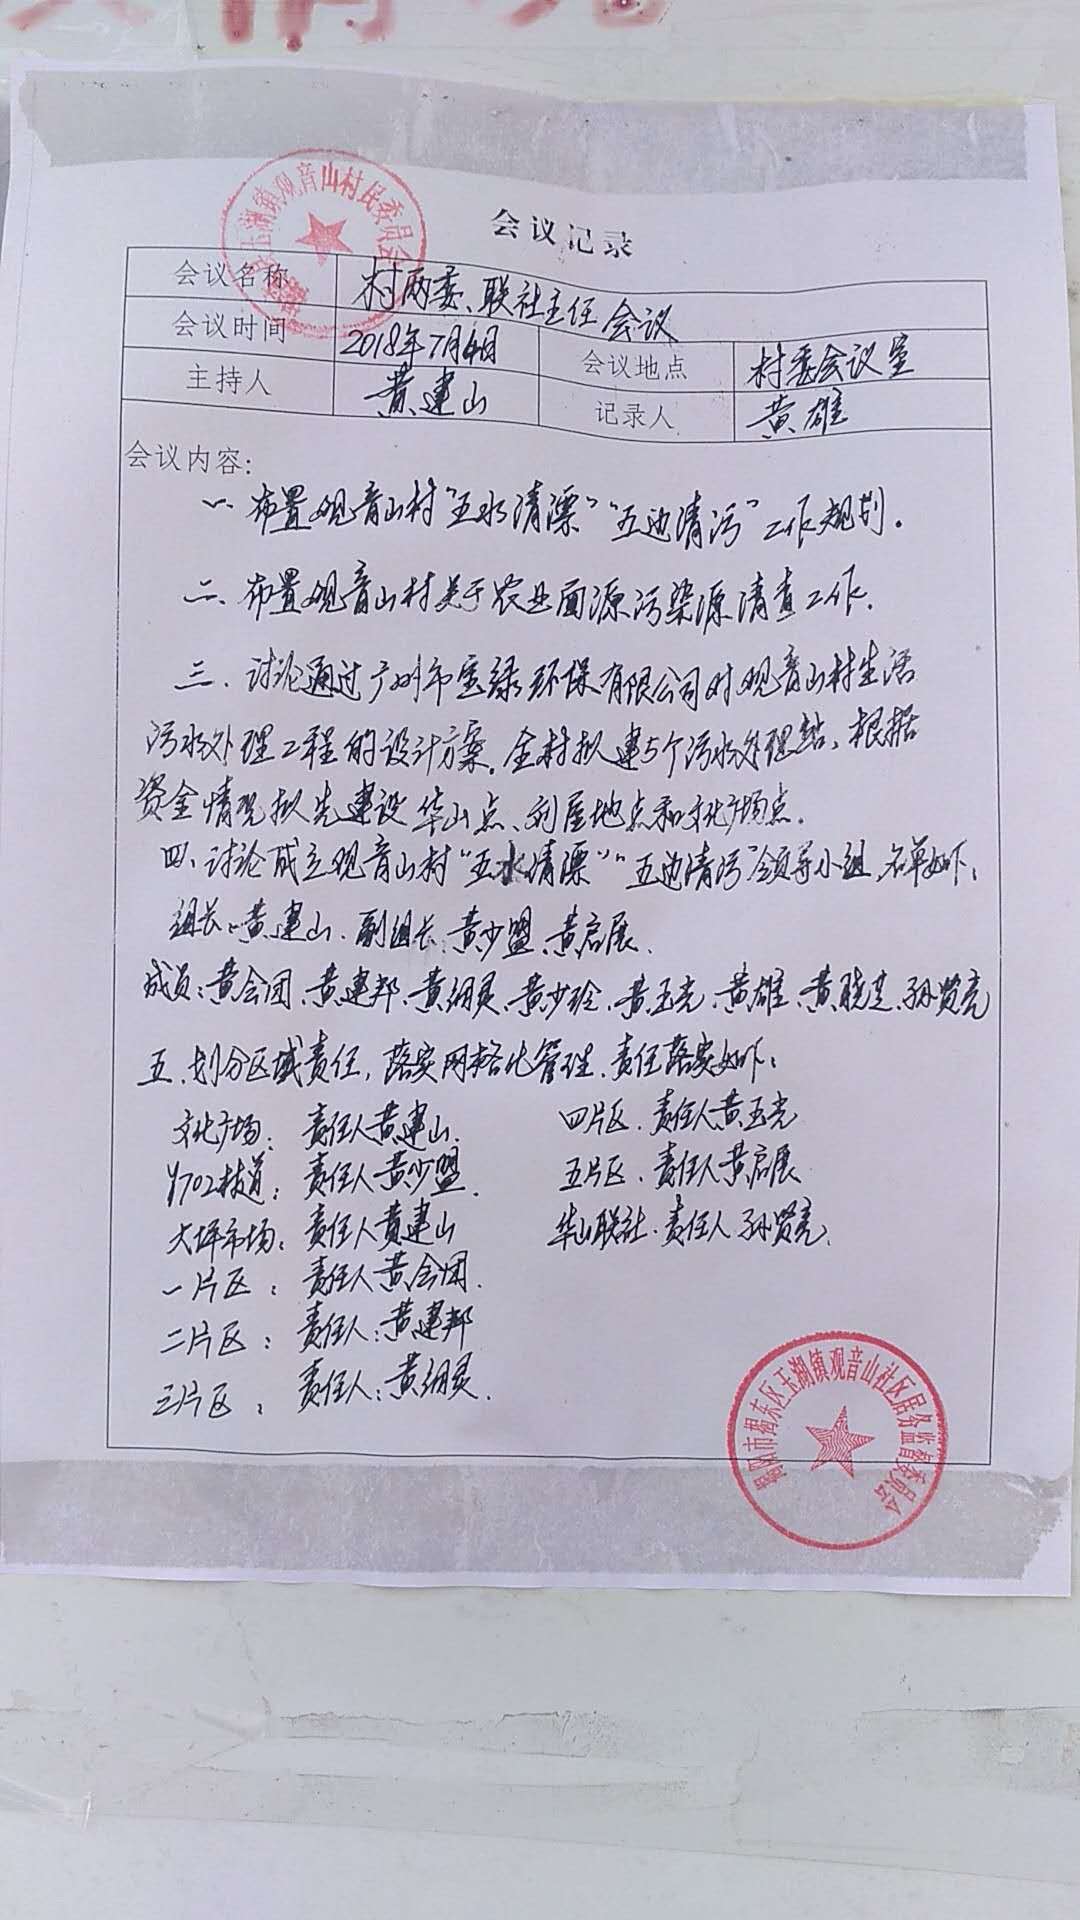 会议记录
会议名称 村两委、联社主任会议
会议时间 2018年7月4日 会议地点 村委会议室
主持人 黄建山 记录人 黄雄
会议内容:
一、布置观音山村"五水清漂""五边清污"工作规划。
二、布置观音山村关于农业面源污染源清查工作.
三、讨论通过广州市宝绿环保有限公司对观音山村生活
污水处理工程的设计方案。全村拟建5个污水处理站、根据
资金情况拟先建设华山点、刘屋地点和文化广场点.
四、讨论成立观音山村"五水清漂""五边清污"领导小组,名单如下:
组长:黄建山、副组长:黄少盟、黄启展.
成员:黄会团、黄建邦、黄炳灵、黄少玲、黄玉光、黄雄、黄晓芝、孙贤亮
五、划分区域责任,落实网格化管理、责任落实如下:
文化广场: 责任人黄建山. 四片区、责任人黄玉光
Y702村道: 责任人黄少盟. 五片区、责任人黄启展
大坪市场: 责任人黄建山 华山联社、责任人孙贤亮.
一片区: 责任人黄会团.
二片区: 责任人:黄建邦
三片区: 责任人:黄炳灵.
玉湖镇观音山村民委员会
揭阳市揭东区玉湖镇观音山社区居务监督委员会